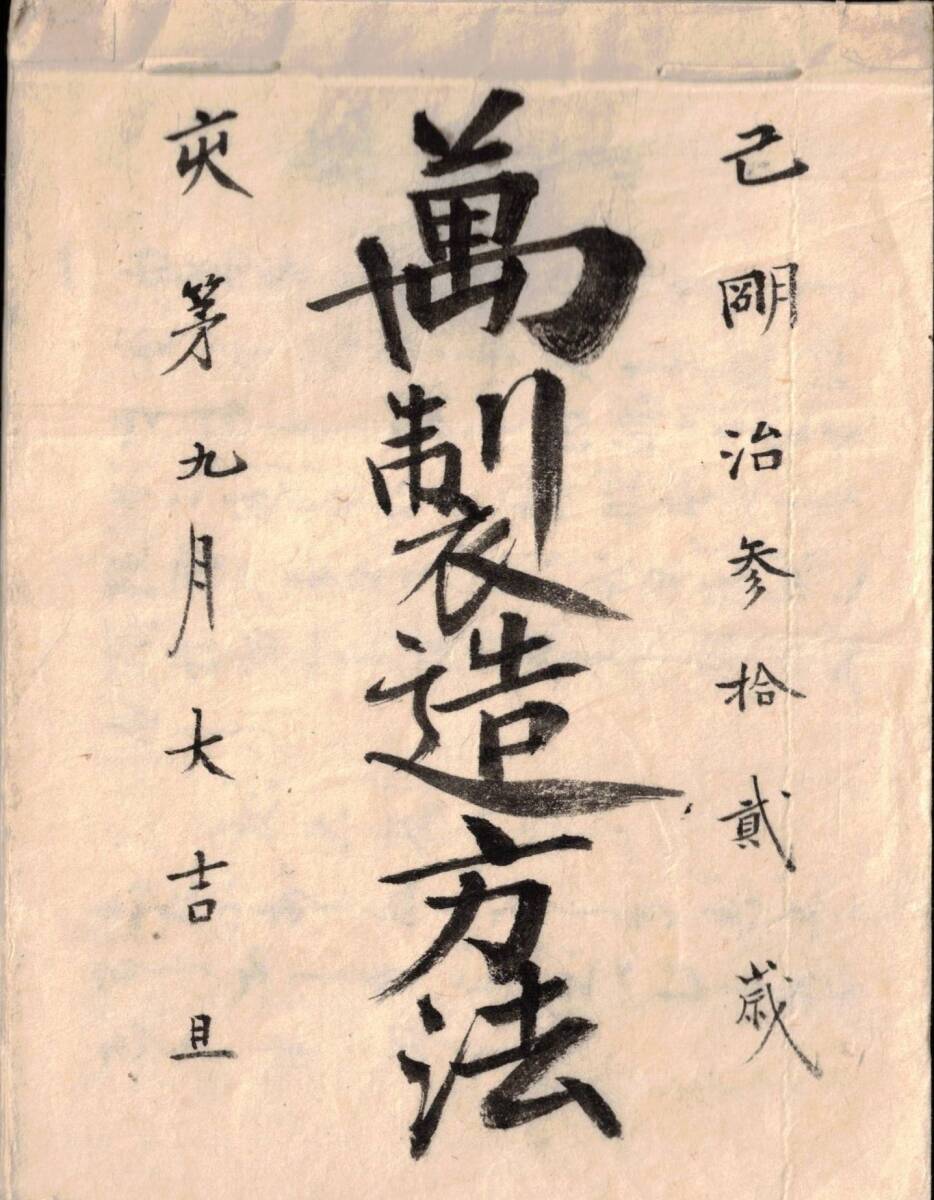 己明治参拾貳歳
萬製造方法
亥第九月大吉旦